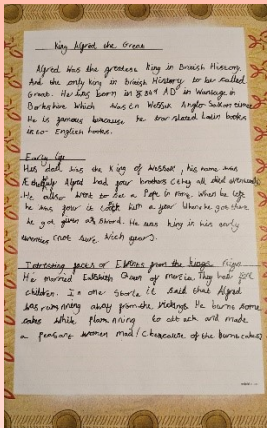 King Alfred the Great
Alfred was the greatest king in British History.
And the only king in British History to be called
Great. He was born in 849 AD in Wantage in
Berkshire which was in Wessex Anglo Saxon times
He is famous because he translated Latin books
into English books.
Early life
His dad was the King of Wessex, his name was
Alfred had four brothers (they all died
He also went to see a Pope in Rome. When he left
he was four it took him a year when he got there
he got given a sword. He was king in his early
(not sure which year).
Interesting faces or Events from the kings reign
He married Ealhswith Queen of mercia. They had five
children. In one storie it said that Alfred
was running away from the vickings He burns some
cakes while planning to attack and made
a peasant women mad! (because of the burnt cakes)